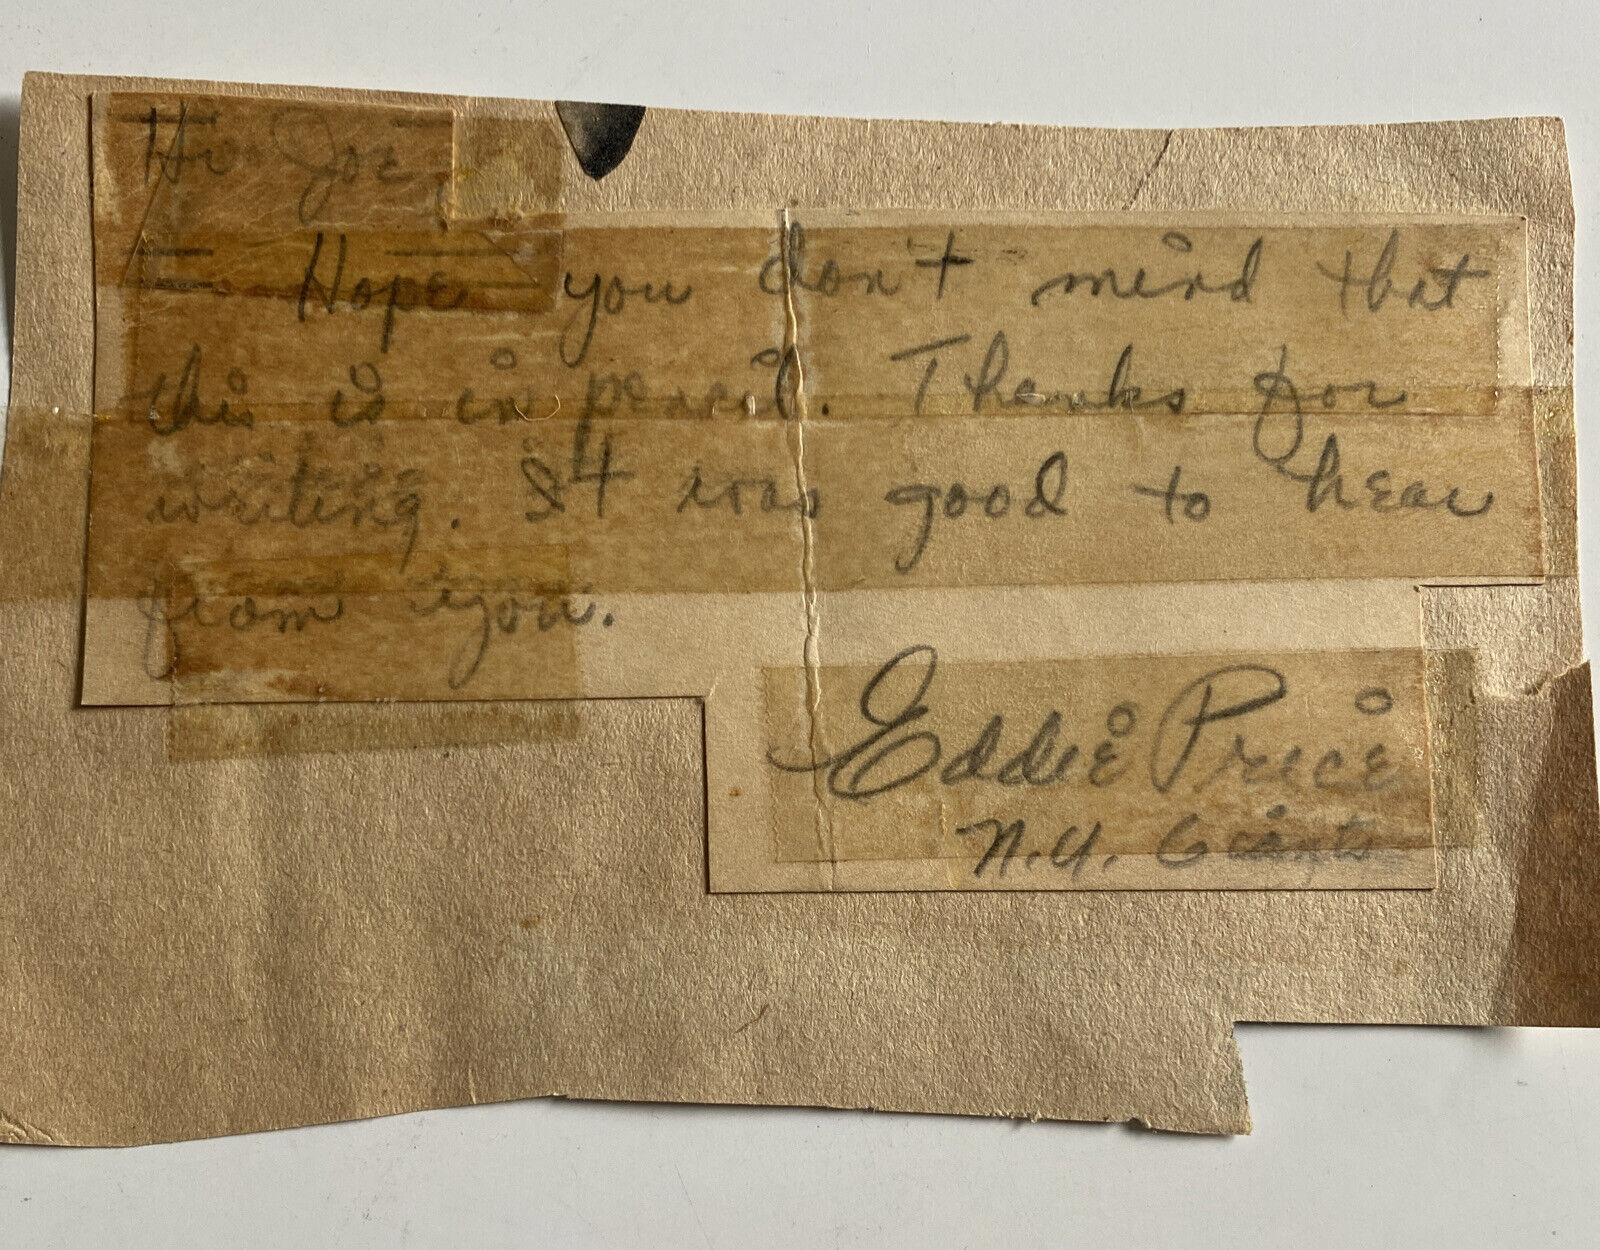 Hi Joe,
Hope you don't mind that
this is in pencil. Thanks for
writing. It was good to hear
from you.
Eddie Price
N.Y. Giants